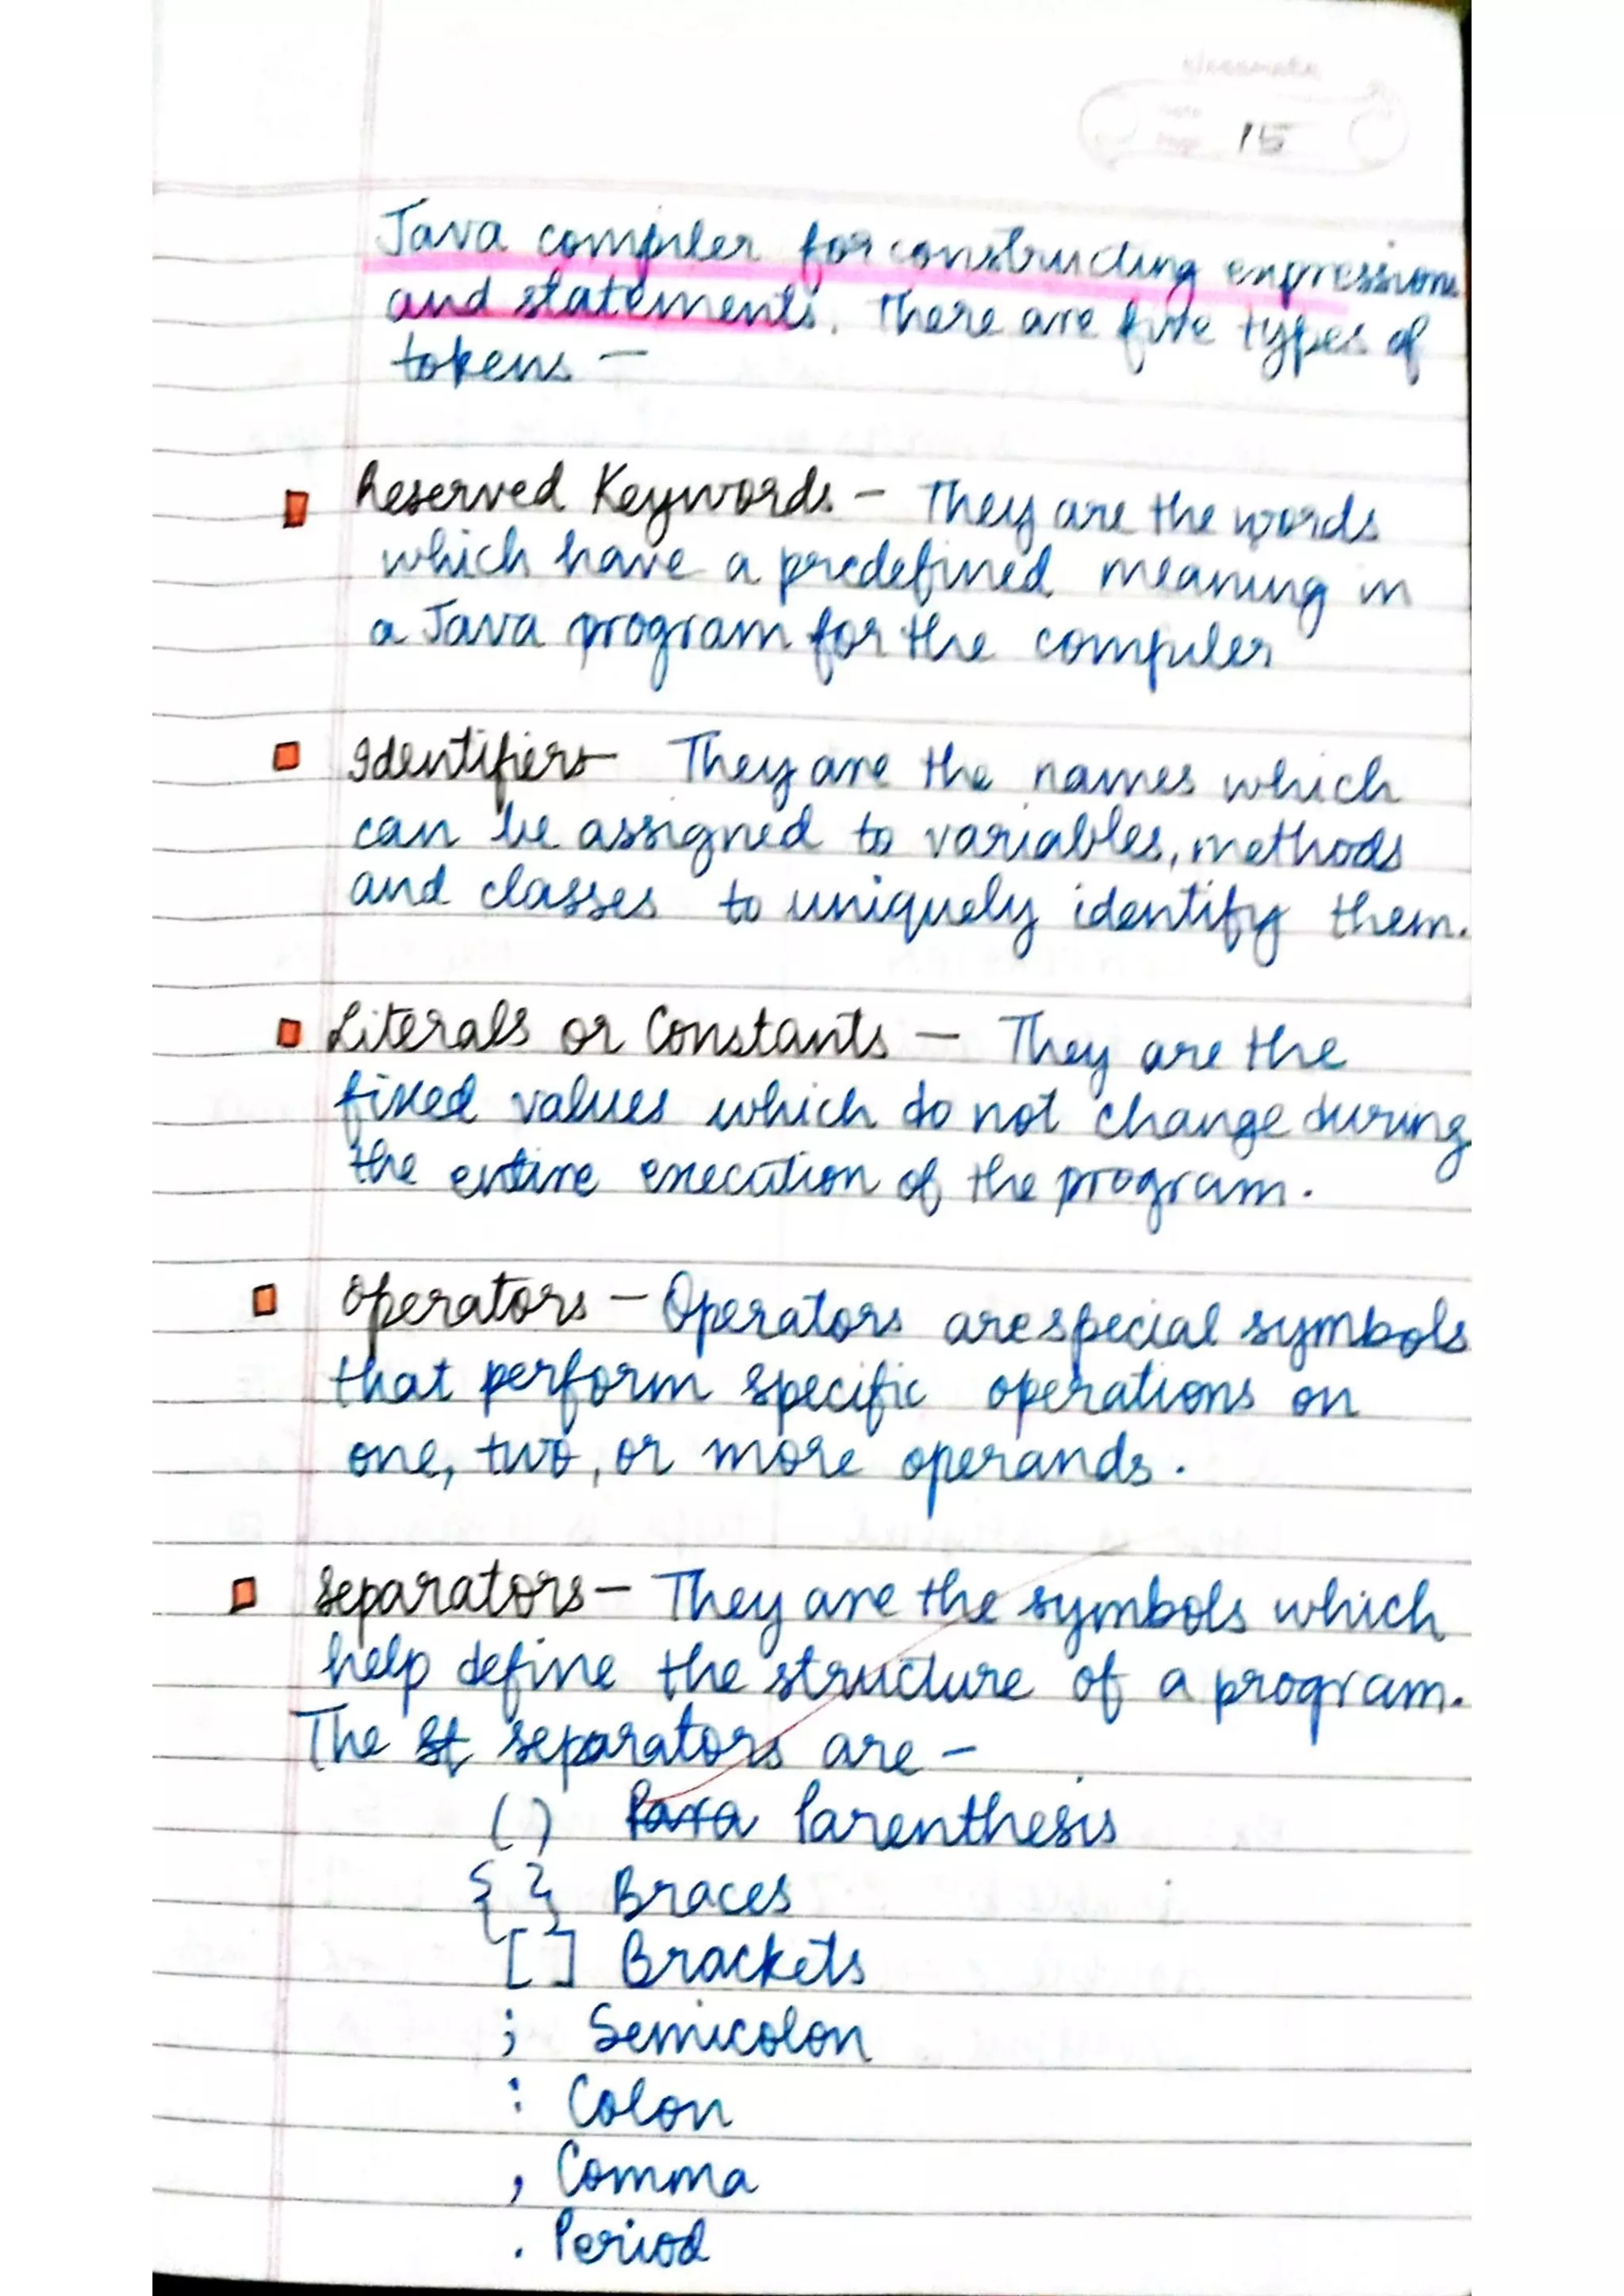 15
Java compiler for constructing expressions
and statements. There are five types of
tokens —
Reserved Keywords — They are the words
which have a predefined meaning in
a Java program for the compiler
Identifiers — They are the names which
can be assigned to variables, methods
and classes to uniquely identify them.
Literals or Constants — They are the
fixed values which do not change during
the entire execution of the program.
Operators — Operators are special symbols
that perform specific operations on
one, two, or more operands.
Separators — They are the symbols which
help define the structure of a program.
The st separators are —
( ) Para Parenthesis
{ } Braces
[ ] Brackets
; Semicolon
: Colon
, Comma
. Period